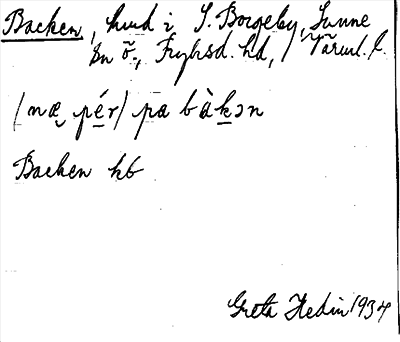 Backen, hmd i S. Borgeby, Sunne
sn ö., Fryksd. hd, Värml. l.
(næ pér) pa bàkən
Backen hb
Greta Hedin 1934